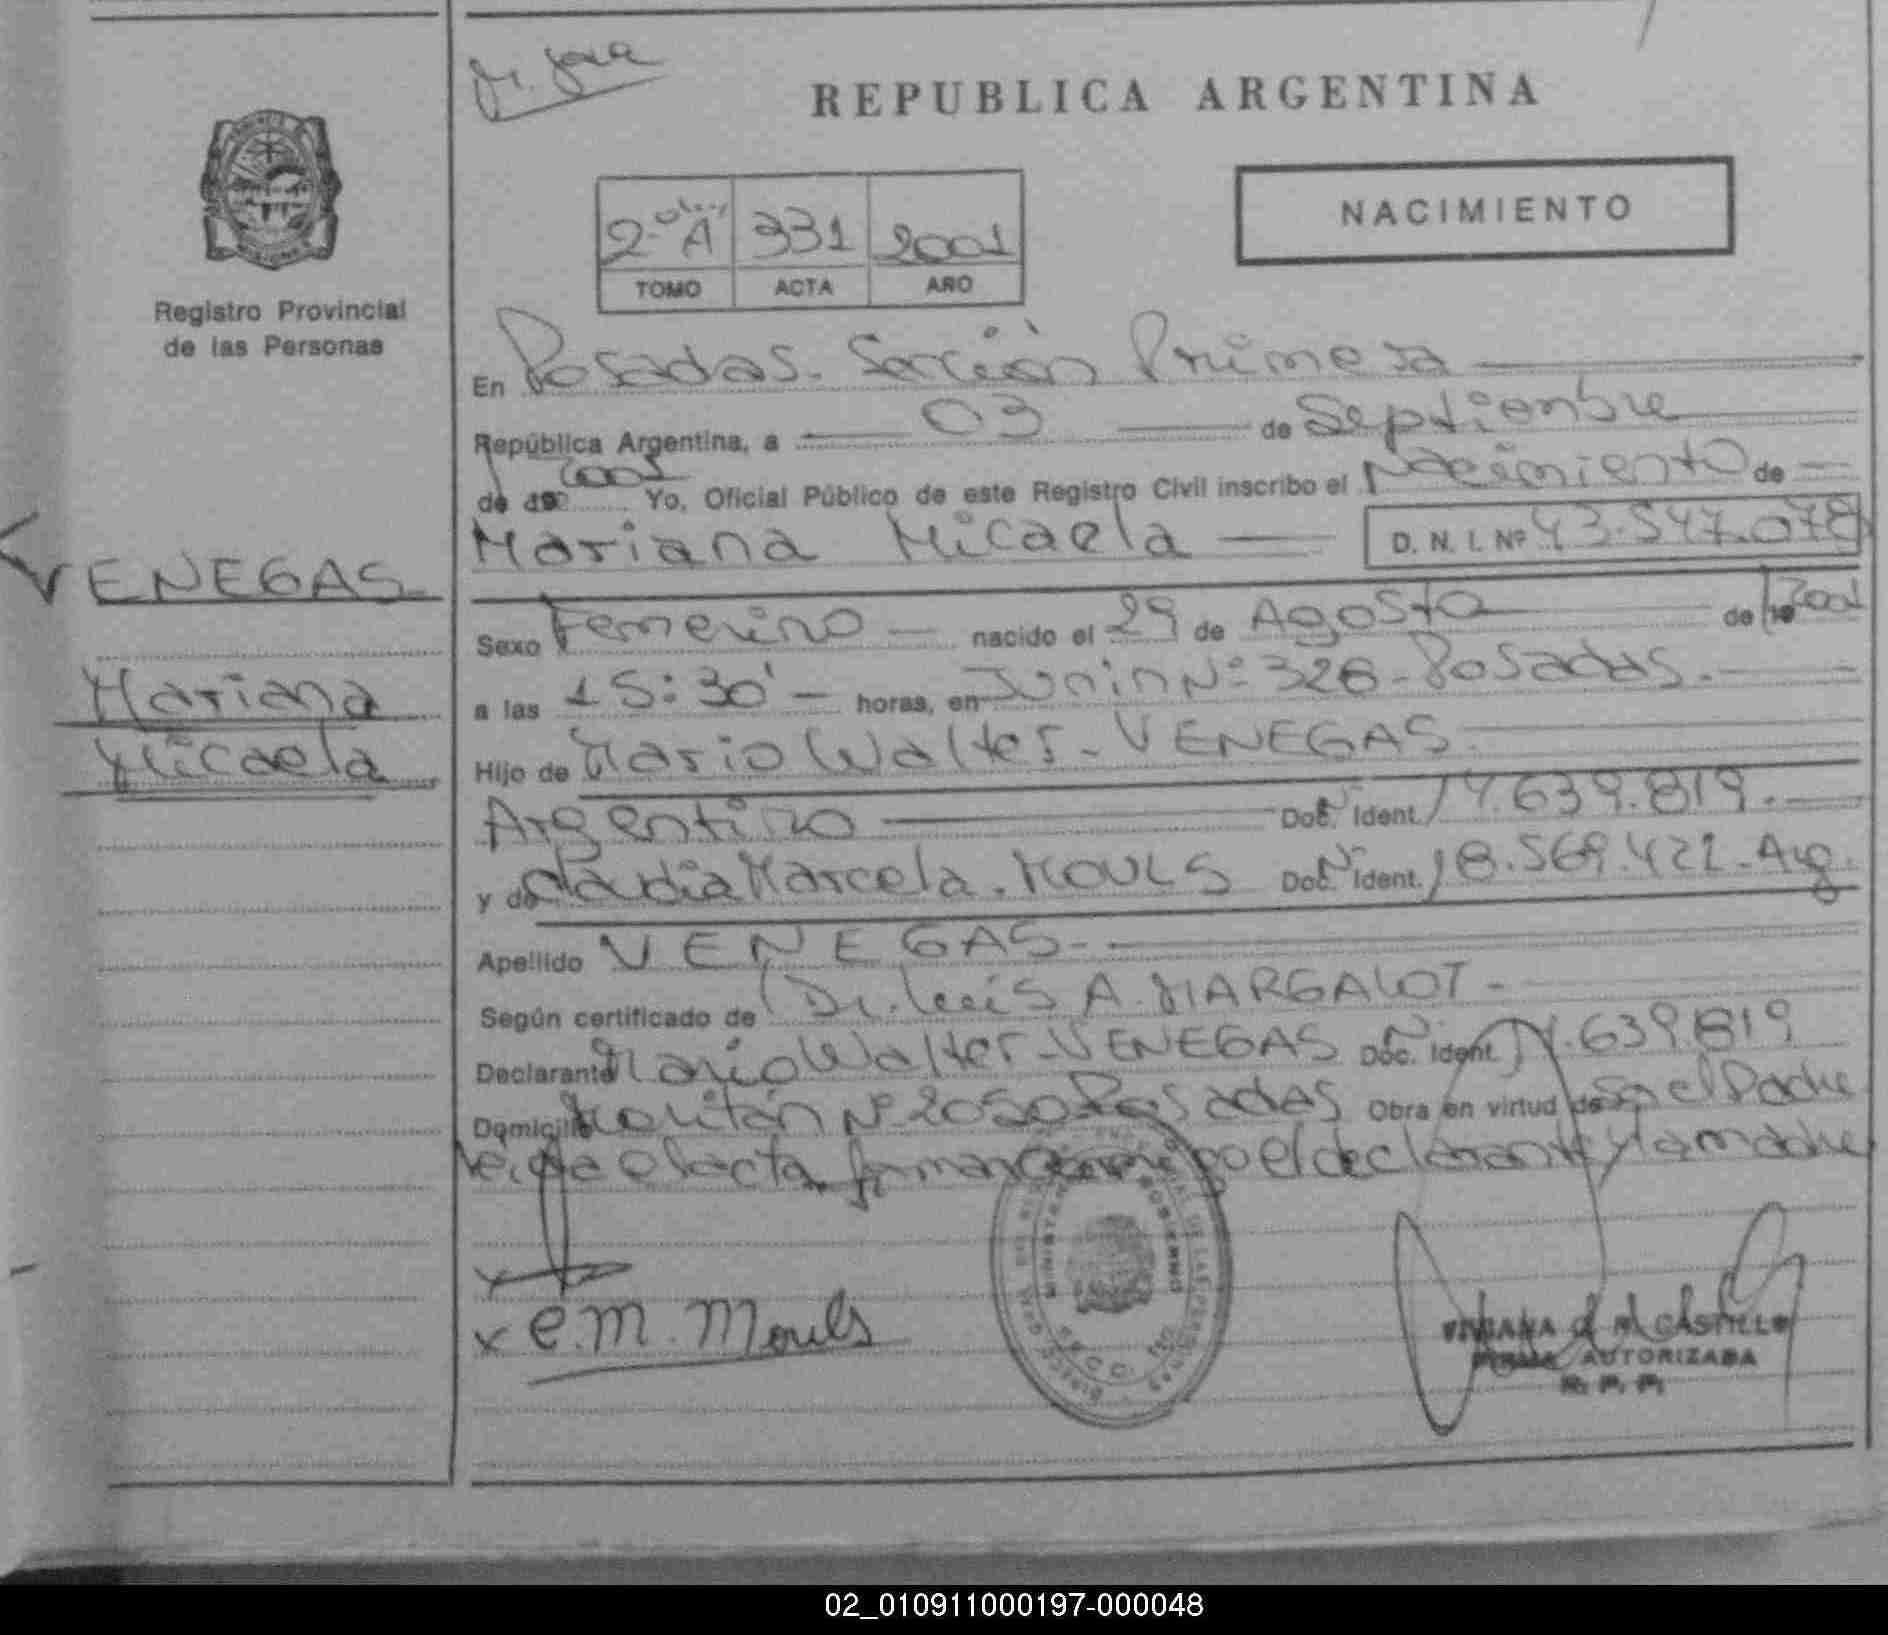 REPUBLICA ARGENTINA
NACIMIENTO
2º A 331 2001
TOMO ACTA AÑO
Registro Provincial
de las Personas
VENEGAS
Mariana
Micaela
En Posadas. Sección Primera
República Argentina, a 03 de Septiembre
de 2001 Yo, Oficial Público de este Registro Civil inscribo el Nacimiento de
Mariana Micaela D. N. I. Nº 43.547.078
Sexo Femenino nacido el 29 de Agosto de 2001
a las 15:30' horas, en Junin Nº 326 - Posadas.
Hijo de Mario Walter - VENEGAS.
Argentino Doc. Nº Ident. 14.639.819.
y de Claudia Marcela. MOULS Doc. Nº Ident. 18.569.422 - Arg.
Apellido VENEGAS.
Según certificado de Dr. Luis A. MARGALOT -
Declarante Mario Walter - VENEGAS Doc. Nº Ident. 14.639.819
Domicilio Nº 2050 Posadas Obra en virtud de Ser el Padre
Leida el acta, firman conmigo el declarante y la madre
x
x C.M. Mouls
MINISTERIO GOBIERNO
VIVIANA CASTILLO
FIRMA AUTORIZADA
R. P. P.
02_010911000197-000048